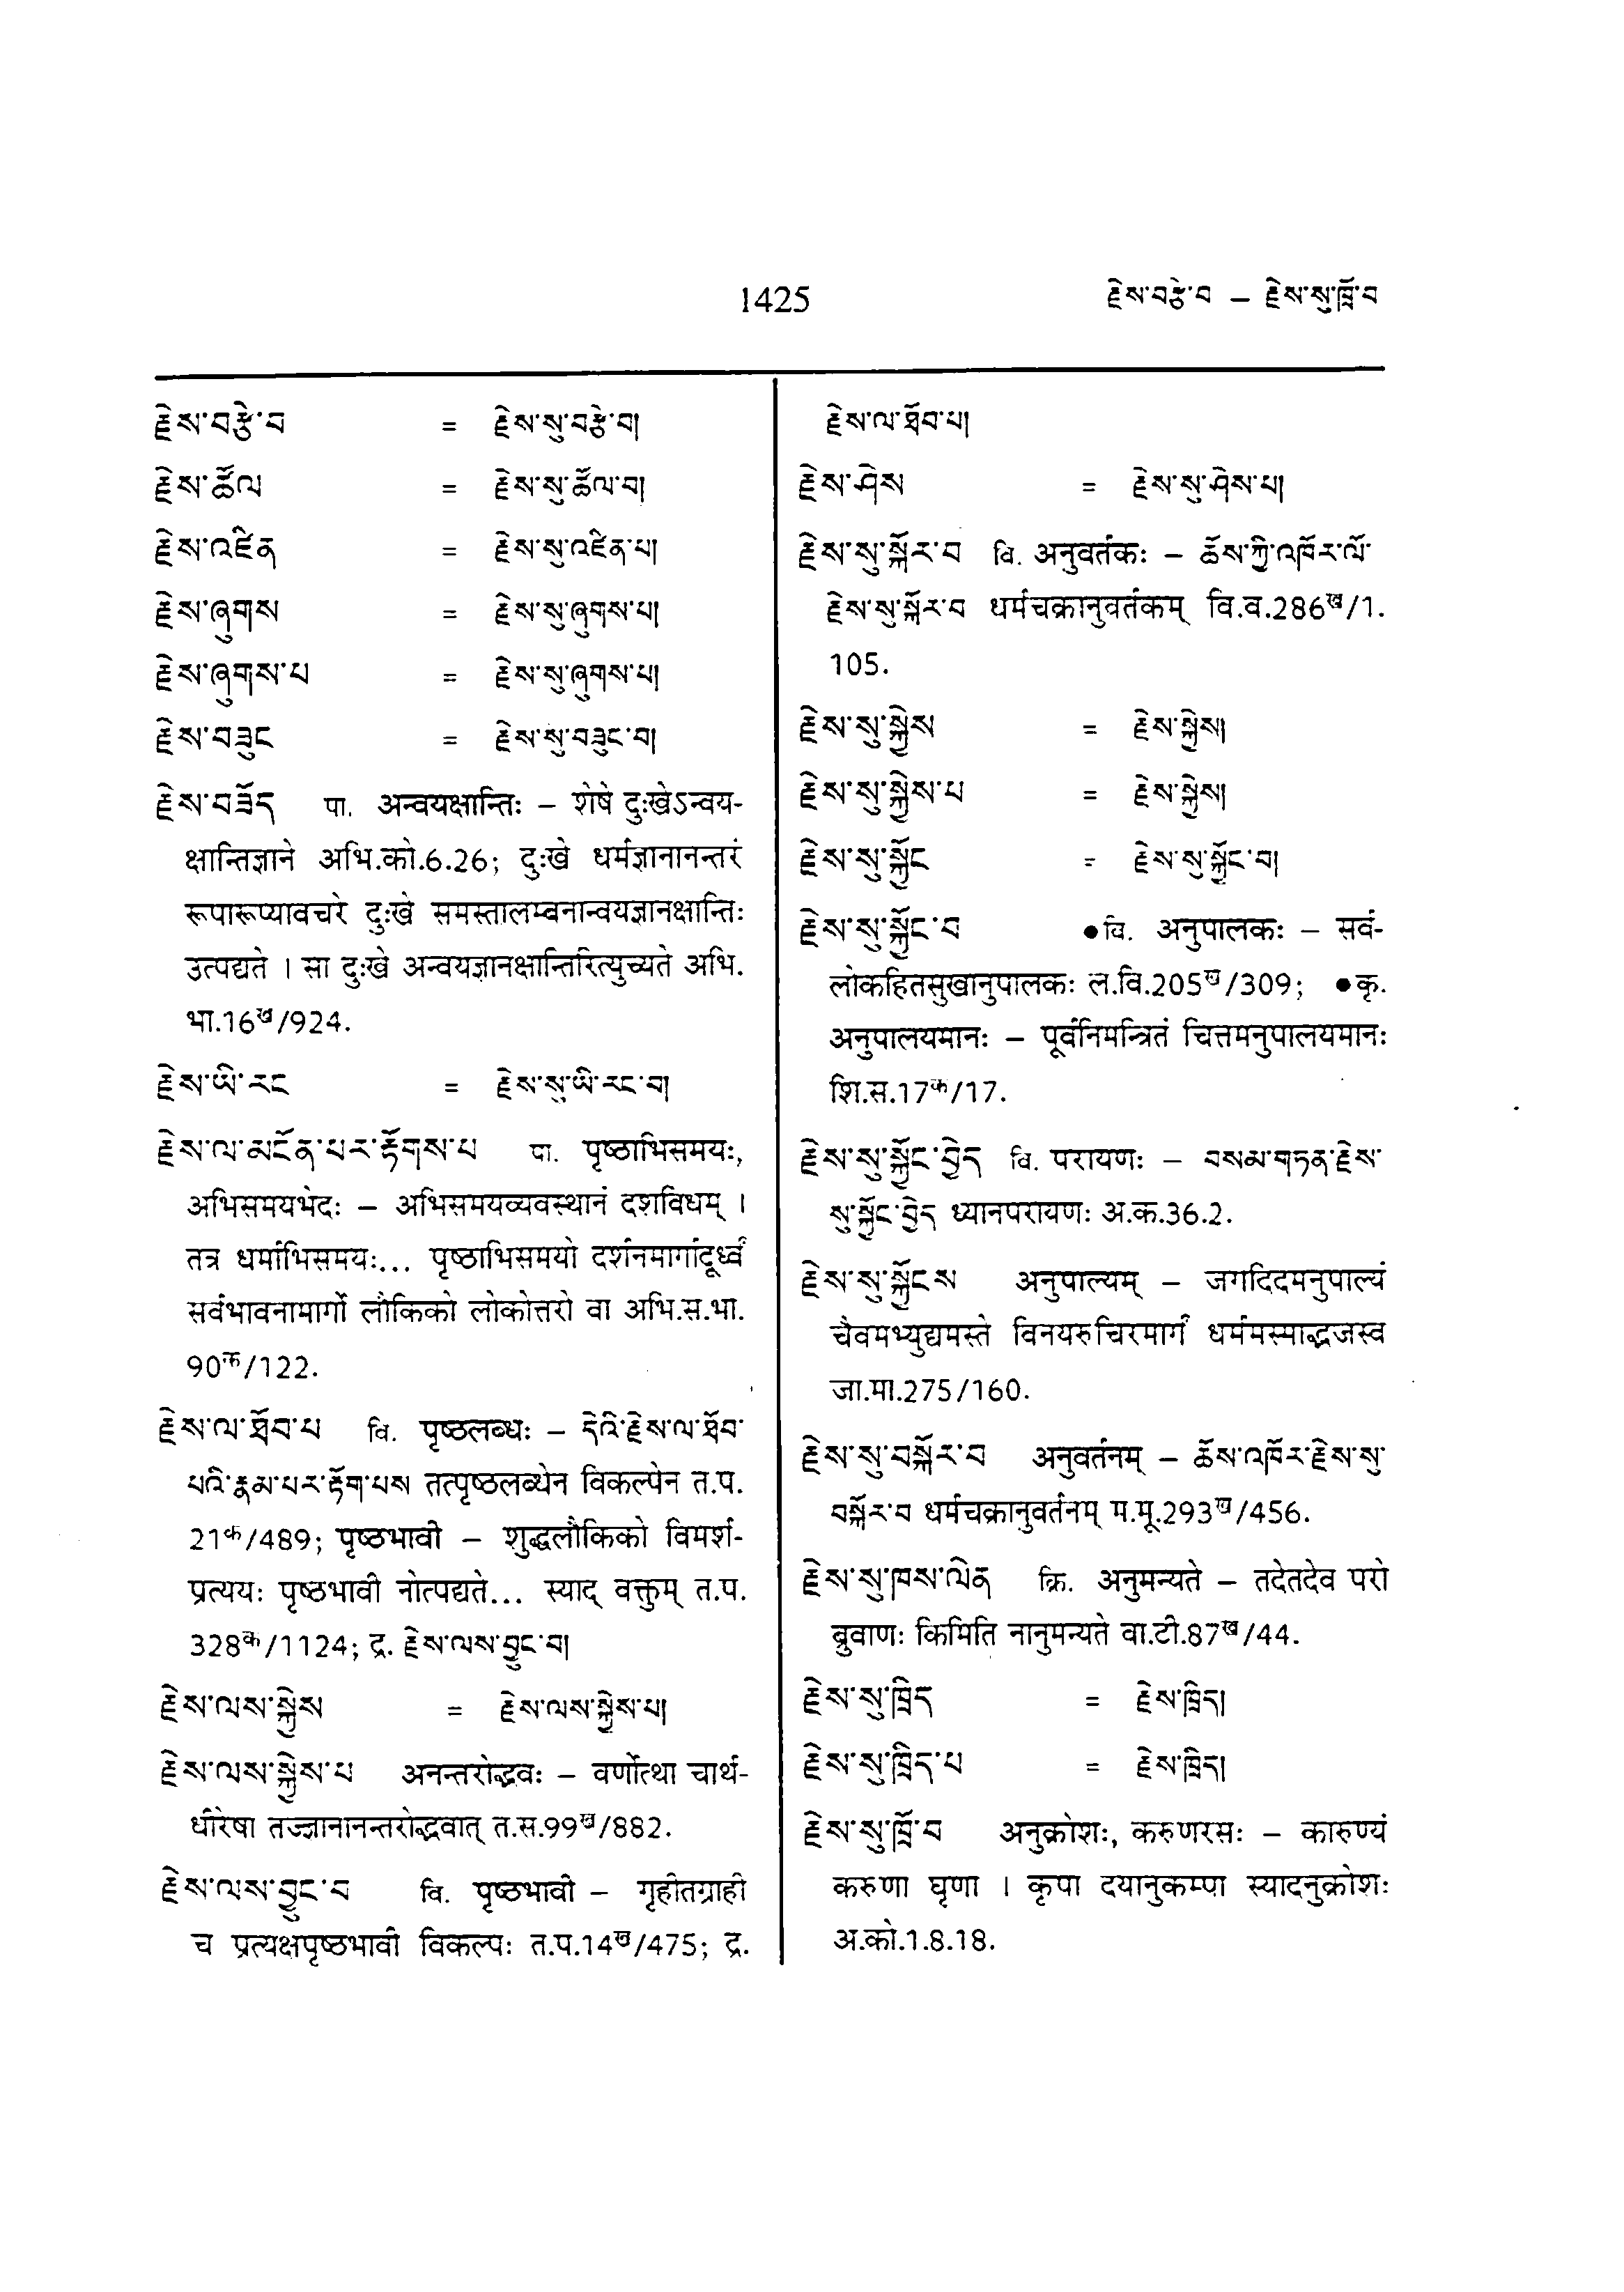 1425
རྗེས་བརྩེ་བ – རྗེས་སུ་ཁྲོ་བ
རྗེས་བརྩེ་བ = རྗེས་སུ་བརྩེ་བ།
རྗེས་ཚོལ = རྗེས་སུ་ཚོལ་བ།
རྗེས་འཛིན = རྗེས་སུ་འཛིན་པ།
རྗེས་ཞུགས = རྗེས་སུ་ཞུགས་པ།
རྗེས་ཞུགས་པ = རྗེས་སུ་ཞུགས་པ།
རྗེས་བཟུང = རྗེས་སུ་བཟུང་བ།
རྗེས་བཟོད पा. अन्वयक्षान्तिः – शेषे दुःखेऽन्वय-
क्षान्तिज्ञाने अभि.को.6.26; दुःखे धर्मज्ञानानन्तरं
रूपारूप्यावचरे दुःखे समस्तालम्बनान्वयज्ञानक्षान्तिः
उत्पद्यते । सा दुःखे अन्वयज्ञानक्षान्तिरित्युच्यते अभि.
भा.16ख/924.
རྗེས་ཡི་རང = རྗེས་སུ་ཡི་རང་བ།
རྗེས་ལ་མངོན་པར་རྟོགས་པ पा. पृष्ठाभिसमयः,
अभिसमयभेदः – अभिसमयव्यवस्थानं दशविधम् ।
तत्र धर्माभिसमयः... पृष्ठाभिसमयो दर्शनमार्गादूर्ध्वं
सर्वभावनामार्गो लौकिको लोकोत्तरो वा अभि.स.भा.
90क/122.
རྗེས་ལ་ཐོབ་པ वि. पृष्ठलब्धः – དེའི་རྗེས་ལ་ཐོབ་
པའི་རྣམ་པར་རྟོག་པས तत्पृष्ठलब्धेन विकल्पेन त.प.
21क/489; पृष्ठभावी – शुद्धलौकिको विमर्श-
प्रत्ययः पृष्ठभावी नोत्पद्यते... स्याद् वक्तुम् त.प.
328क/1124; द्र. རྗེས་ལས་བྱུང་བ།
རྗེས་ལས་སྐྱེས = རྗེས་ལས་སྐྱེས་པ།
རྗེས་ལས་སྐྱེས་པ अनन्तरोद्भवः – वर्णोत्था चार्थ-
धीरेषा तज्ज्ञानानन्तरोद्भवात् त.स.99ख/882.
རྗེས་ལས་བྱུང་བ वि. पृष्ठभावी – गृहीतग्राही
च प्रत्यक्षपृष्ठभावी विकल्पः त.प.14ख/475; द्र.
རྗེས་ལ་ཐོབ་པ།
རྗེས་ཤེས = རྗེས་སུ་ཤེས་པ།
རྗེས་སུ་སྐོར་བ वि. अनुवर्तकः – ཆོས་ཀྱི་འཁོར་ལོ་
རྗེས་སུ་སྐོར་བ धर्मचक्रानुवर्तकम् वि.व.286ख/1.
105.
རྗེས་སུ་སྐྱེས = རྗེས་སྐྱེས།
རྗེས་སུ་སྐྱེས་པ = རྗེས་སྐྱེས།
རྗེས་སུ་སྐྱོང = རྗེས་སུ་སྐྱོང་བ།
རྗེས་སུ་སྐྱོང་བ ●वि. अनुपालकः – सर्व-
लोकहितसुखानुपालकः ल.वि.205ख/309; ●कृ.
अनुपालयमानः – पूर्वनिमन्त्रितं चित्तमनुपालयमानः
शि.स.17क/17.
རྗེས་སུ་སྐྱོང་བྱེད वि. परायणः – བསམ་གཏན་རྗེས་
སུ་སྐྱོང་བྱེད ध्यानपरायणः अ.क.36.2.
རྗེས་སུ་སྐྱོངས अनुपाल्यम् – जगदिदमनुपाल्यं
चैवमभ्युद्यमस्ते विनयरुचिरमार्गं धर्ममस्माद्भजस्व
जा.मा.275/160.
རྗེས་སུ་བསྐོར་བ अनुवर्तनम् – ཆོས་འཁོར་རྗེས་སུ་
བསྐོར་བ धर्मचक्रानुवर्तनम् म.मू.293ख/456.
རྗེས་སུ་ཁས་ལེན क्रि. अनुमन्यते – तदेतदेव परो
ब्रुवाणः किमिति नानुमन्यते वा.टी.87ख/44.
རྗེས་སུ་ཁྲིད = རྗེས་ཁྲིད།
རྗེས་སུ་ཁྲིད་པ = རྗེས་ཁྲིད།
རྗེས་སུ་ཁྲོ་བ अनुक्रोशः, करुणरसः – कारुण्यं
करुणा घृणा । कृपा दयानुकम्पा स्यादनुक्रोशः
अ.को.1.8.18.